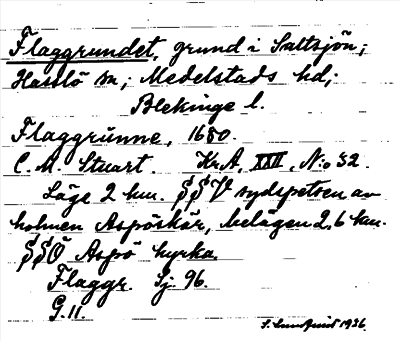 Flaggrundet, grund i Saltsjön;
Hasslö sn; Medelstads hd;
Blekinge l.
Flaggrünne, 1680.
C. M. Stuart. Kr.A, XXII, N:o 32.
Läge 2 km. SSV sydspetsen av
holmen Aspöskär, belägen 2,6 km.
SSÖ Aspö kyrka.
Flaggr. Sj. 96.
G. 11.
S. Lundquist 1936.